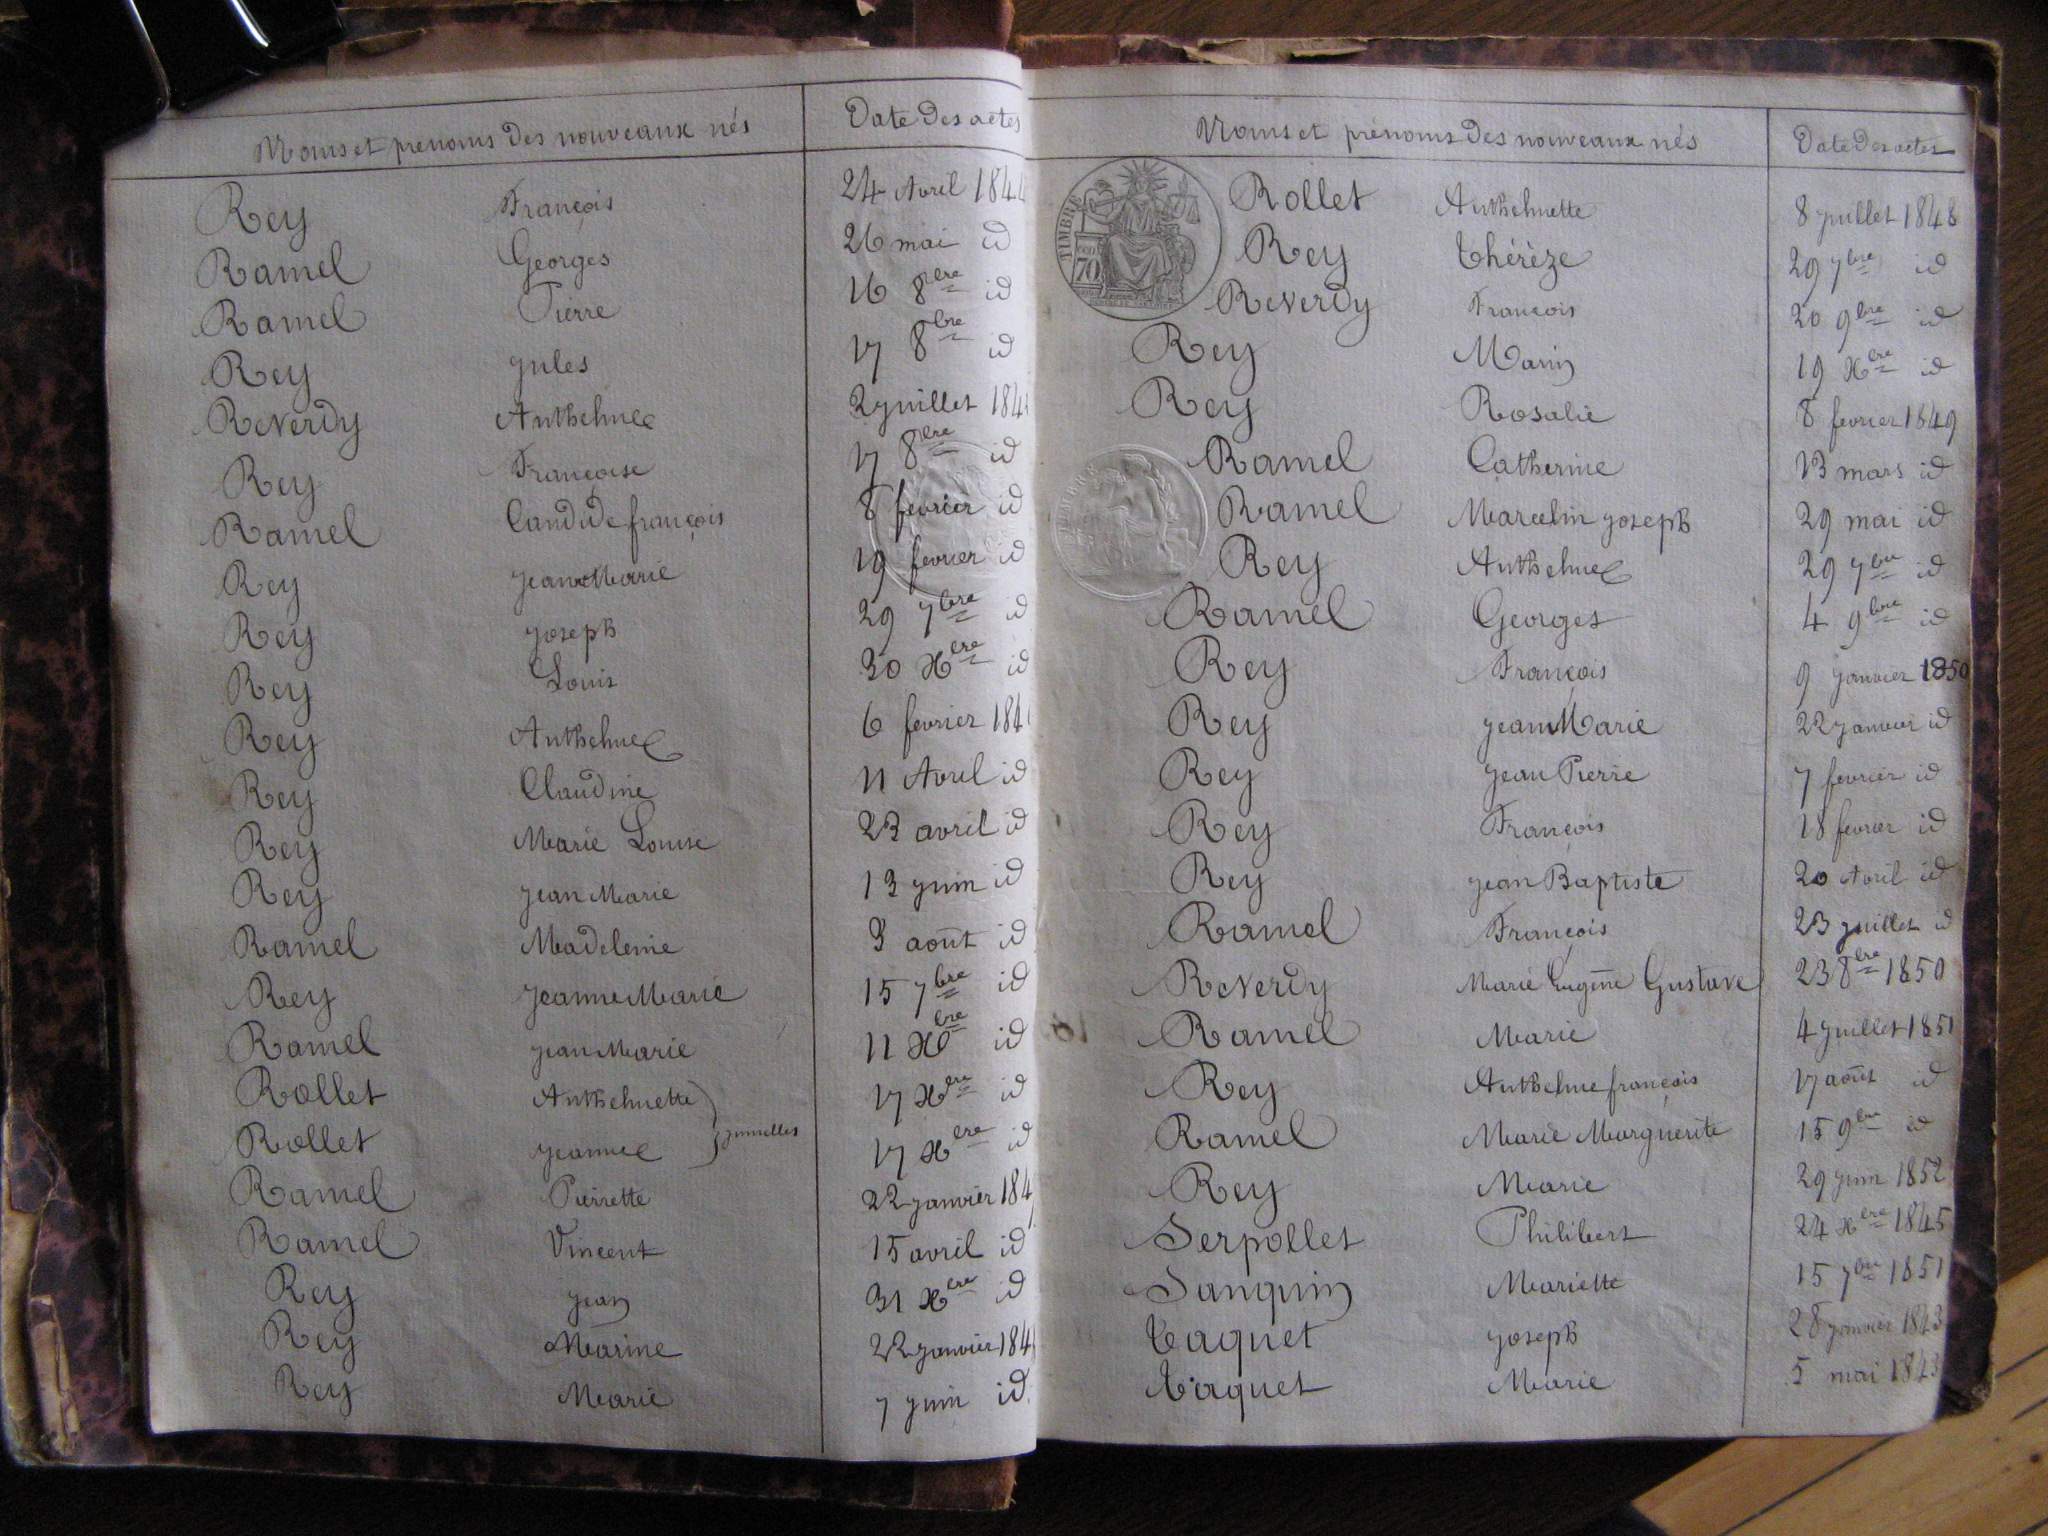 Noms et prénoms des nouveaux nés Date des actes
Rey François 24 Avril 184
Ramel Georges 26 mai id
Ramel Pierre 16 8bre id
Rey Jules 17 8bre id
Reverdy Anthelme 2 juillet 184
Rey Françoise 17 8bre id
Ramel Candide françois 8 fevrier id
Rey Jean Marie 19 fevrier id
Rey Joseph 29 7bre id
Rey Louis 30 Xbre id
Rey Anthelme 6 fevrier 184
Rey Claudine 11 Avril id
Rey Marie Louise 23 avril id
Rey Jean Marie 13 juin id
Ramel Madeleine 3 août id
Rey Jeanne Marie 15 7bre id
Ramel Jean Marie 11 Xbre id
Rollet Anthelmette 17 Xbre id
jumelles
Rollet Jeanne 17 Xbre id
Ramel Pierrette 22 janvier 184
Ramel Vincent 15 avril id
Rey Jean 31 Xbre id
Rey Marine 22 janvier 184
Rey Marie 7 juin id
Noms et prénoms des nouveaux nés Date des actes
TIMBRE
70
Rollet Anthelmette 8 juillet 1848
Rey Thérèze 29 7bre id
Reverdy François 20 9bre id
Rey Marin 19 Xbre id
Rey Rosalie 8 fevrier 1849
Ramel Catherine 13 mars id
Ramel Marcelin Joseph 29 mai id
Rey Anthelme 29 7bre id
Ramel Georges 4 9bre id
Rey François 9 janvier 1850
Rey Jean Marie 22 janvier id
Rey Jean Pierre 7 fevrier id
Rey François 18 fevrier id
Rey Jean Baptiste 20 Avril id
Ramel François 23 juillet id
Reverdy Marie Eugène Gustave 23 8bre 1850
Ramel Marie 4 juillet 1851
Rey Anthelme françois 17 août id
Ramel Marie Marguerite 15 9bre id
Rey Marie 29 juin 1852
Serpollet Philibert 24 Xbre 1845
Sanquin Mariette 15 7bre 1851
Taquet Joseph 28 janvier 1843
Taquet Marie 5 mai 1843